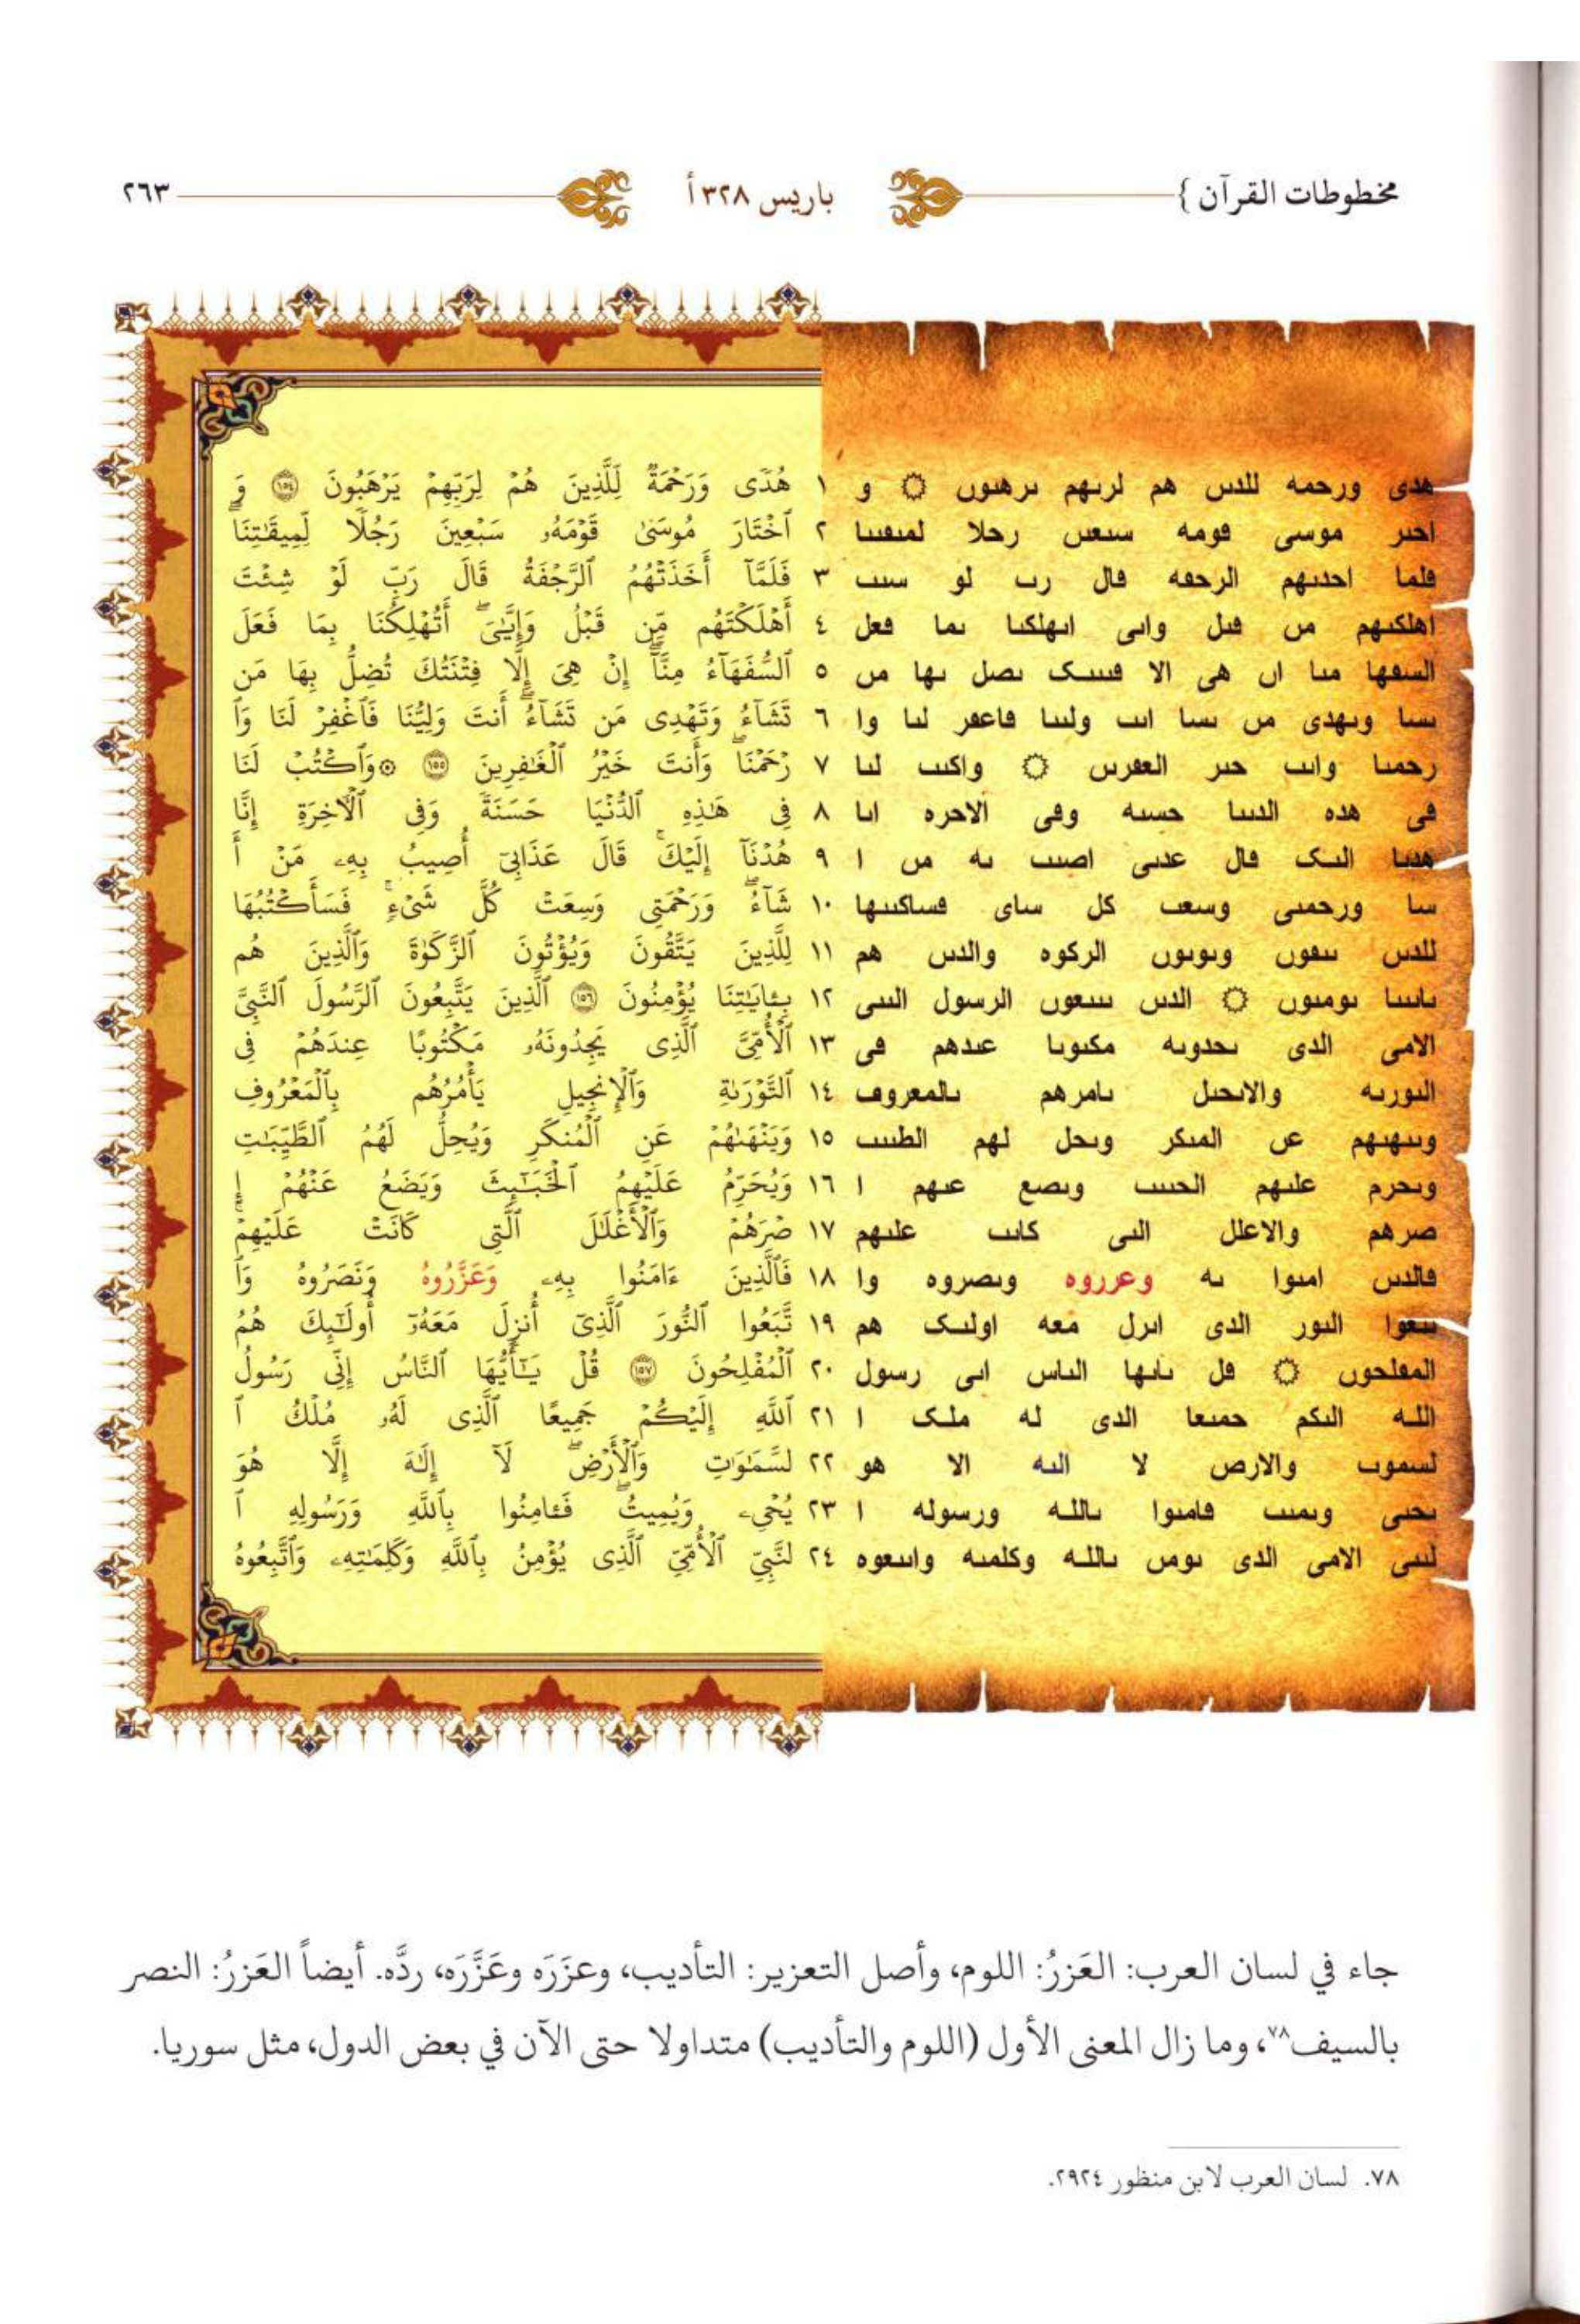 مخطوطات القرآن }
باريس ٣٢٨ أ
٢٦٣
هدى ورحمه للدٮں هم لرٮهم ٮرهٮوں ۞ و ١ هُدًى وَرَحْمَةٌ لِّلَّذِينَ هُمْ لِرَبِّهِمْ يَرْهَبُونَ ١٥٤ وَ
احٮر موسى ڡومه سٮعٮں رحلا لمٮڡٮٮا ٢ ٱخْتَارَ مُوسَىٰ قَوْمَهُۥ سَبْعِينَ رَجُلًا لِّمِيقَٰتِنَا
ڡلما احدٮهم الرحڡه ڡال رٮ لو سٮٮ ٣ فَلَمَّآ أَخَذَتْهُمُ ٱلرَّجْفَةُ قَالَ رَبِّ لَوْ شِئْتَ
اهلكٮهم مں ڡٮل واٮى اٮهلكٮا ٮما ڡعل ٤ أَهْلَكْتَهُم مِّن قَبْلُ وَإِيَّٰىَ ۖ أَتُهْلِكُنَا بِمَا فَعَلَ
السڡها مٮا اں هى الا ڡٮٮٮک ٮصل ٮها مں ٥ ٱلسُّفَهَآءُ مِنَّآ ۖ إِنْ هِىَ إِلَّا فِتْنَتُكَ تُضِلُّ بِهَا مَن
ٮسا وٮهدى مں ٮسا اٮٮ ولٮٮا ڡاعڡر لٮا وا ٦ تَشَآءُ وَتَهْدِى مَن تَشَآءُ ۖ أَنتَ وَلِيُّنَا فَٱغْفِرْ لَنَا وَٱ
رحمٮا واٮٮ حٮر العڡرٮں ۞ واكٮٮ لٮا ٧ رْحَمْنَا ۖ وَأَنتَ خَيْرُ ٱلْغَٰفِرِينَ ١٥٥ ۞ وَٱكْتُبْ لَنَا
ڡى هده الدٮٮا حسٮه وڡى الاحره اٮا ٨ فِى هَٰذِهِ ٱلدُّنْيَا حَسَنَةً وَفِى ٱلْـَٔاخِرَةِ إِنَّا
هدٮا الٮک ڡال عدٮى اصٮٮ ٮه مں ا ٩ هُدْنَآ إِلَيْكَ ۚ قَالَ عَذَابِىٓ أُصِيبُ بِهِۦ مَنْ أَ
سا ورحمٮى وسعٮ كل ساى ڡساكٮٮها ١٠ شَآءُ ۖ وَرَحْمَتِى وَسِعَتْ كُلَّ شَىْءٍ ۚ فَسَأَكْتُبُهَا
للدٮں ٮٮڡوں وٮوٮوں الركوه والدٮں هم ١١ لِلَّذِينَ يَتَّقُونَ وَيُؤْتُونَ ٱلزَّكَوٰةَ وَٱلَّذِينَ هُم
ٮاٮٮٮا ٮومٮوں ۞ الدٮں ٮٮٮعوں الرسول الٮٮى ١٢ بِـَٔايَٰتِنَا يُؤْمِنُونَ ١٥٦ ٱلَّذِينَ يَتَّبِعُونَ ٱلرَّسُولَ ٱلنَّبِىَّ
الامى الدى ٮحدوٮه مكٮوٮا عٮدهم ڡى ١٣ ٱلْأُمِّىَّ ٱلَّذِى يَجِدُونَهُۥ مَكْتُوبًا عِندَهُمْ فِى
الٮورٮه والاٮحٮل ٮامرهم ٮالمعروڡ ١٤ ٱلتَّوْرَىٰةِ وَٱلْإِنجِيلِ يَأْمُرُهُم بِٱلْمَعْرُوفِ
وٮٮهٮهم عں المٮكر وٮحل لهم الطٮٮٮ ١٥ وَيَنْهَىٰهُمْ عَنِ ٱلْمُنكَرِ وَيُحِلُّ لَهُمُ ٱلطَّيِّبَٰتِ
وٮحرم علٮهم الحٮٮٮ وٮصع عٮهم ا ١٦ وَيُحَرِّمُ عَلَيْهِمُ ٱلْخَبَٰٓئِثَ وَيَضَعُ عَنْهُمْ إِ
صرهم والاعلل الٮى كاٮٮ علٮهم ١٧ صْرَهُمْ وَٱلْأَغْلَٰلَ ٱلَّتِى كَانَتْ عَلَيْهِمْ ۚ
ڡالدٮں امٮوا ٮه وعرروه وٮصروه وا ١٨ فَٱلَّذِينَ ءَامَنُوا بِهِۦ وَعَزَّرُوهُ وَنَصَرُوهُ وَٱ
ٮٮعوا الٮور الدى اٮرل معه اولٮک هم ١٩ تَّبَعُوا ٱلنُّورَ ٱلَّذِىٓ أُنزِلَ مَعَهُۥٓ ۙ أُولَٰٓئِكَ هُمُ
المڡلحوں ۞ ڡل ٮاٮها الٮاس اٮى رسول ٢٠ ٱلْمُفْلِحُونَ ١٥٧ قُلْ يَٰٓأَيُّهَا ٱلنَّاسُ إِنِّى رَسُولُ
الله الٮكم حمٮعا الدى له ملک ا ٢١ ٱللَّهِ إِلَيْكُمْ جَمِيعًا ٱلَّذِى لَهُۥ مُلْكُ ٱ
لسموٮ والارص لا الٮه الا هو ٢٢ لسَّمَٰوَٰتِ وَٱلْأَرْضِ ۖ لَآ إِلَٰهَ إِلَّا هُوَ
ٮحٮى وٮمٮٮ ڡامٮوا ٮالله ورسوله ا ٢٣ يُحْىِۦ وَيُمِيتُ ۖ فَـَٔامِنُوا بِٱللَّهِ وَرَسُولِهِ ٱ
لٮٮى الامى الدى ٮومں ٮالله وكلمٮه واٮٮعوه ٢٤ لنَّبِىِّ ٱلْأُمِّىِّ ٱلَّذِى يُؤْمِنُ بِٱللَّهِ وَكَلِمَٰتِهِۦ وَٱتَّبِعُوهُ
جاء في لسان العرب: العَزرُ: اللوم، وأصل التعزير: التأديب، وعزَرَه وعَزَّرَه، ردَّه. أيضاً العَزرُ: النصر
بالسيف٧٨، وما زال المعنى الأول (اللوم والتأديب) متداولا حتى الآن في بعض الدول، مثل سوريا.
٧٨. لسان العرب لابن منظور ٢٩٢٤.